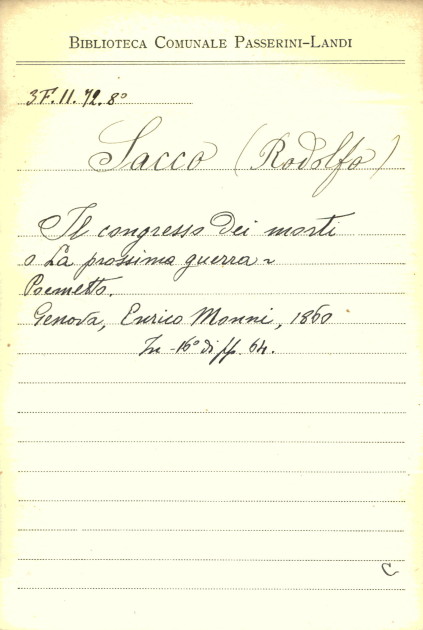 BIBLIOTECA COMUNALE PASSERINI-LANDI
3F.11.72.8º
Sacco (Rodolfo)
Il congresso dei morti
o La prossima guerra ~
Poemetto.
Genova, Enrico Monni, 1860
In -16º di pp. 64.
C